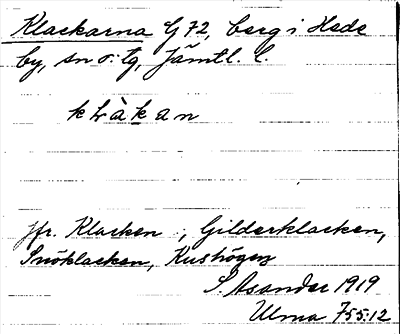 Klackarna G 72, berg i Hede
by, sn o. tg, Jämtl. l.
klàkan
Jfr. Klacken, Gilderklacken,
Snöklacken, Kushögen
S. Asander 1919
Ulma 755:12